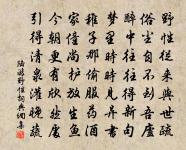 野性從來與世疏
俗塵自不到吾廬
醉中往往得新句
夢里時時見異書
稚子那偷服藥酒
家僮尚護放生魚
今朝更有欣然處
引得清泉灌晚蔬